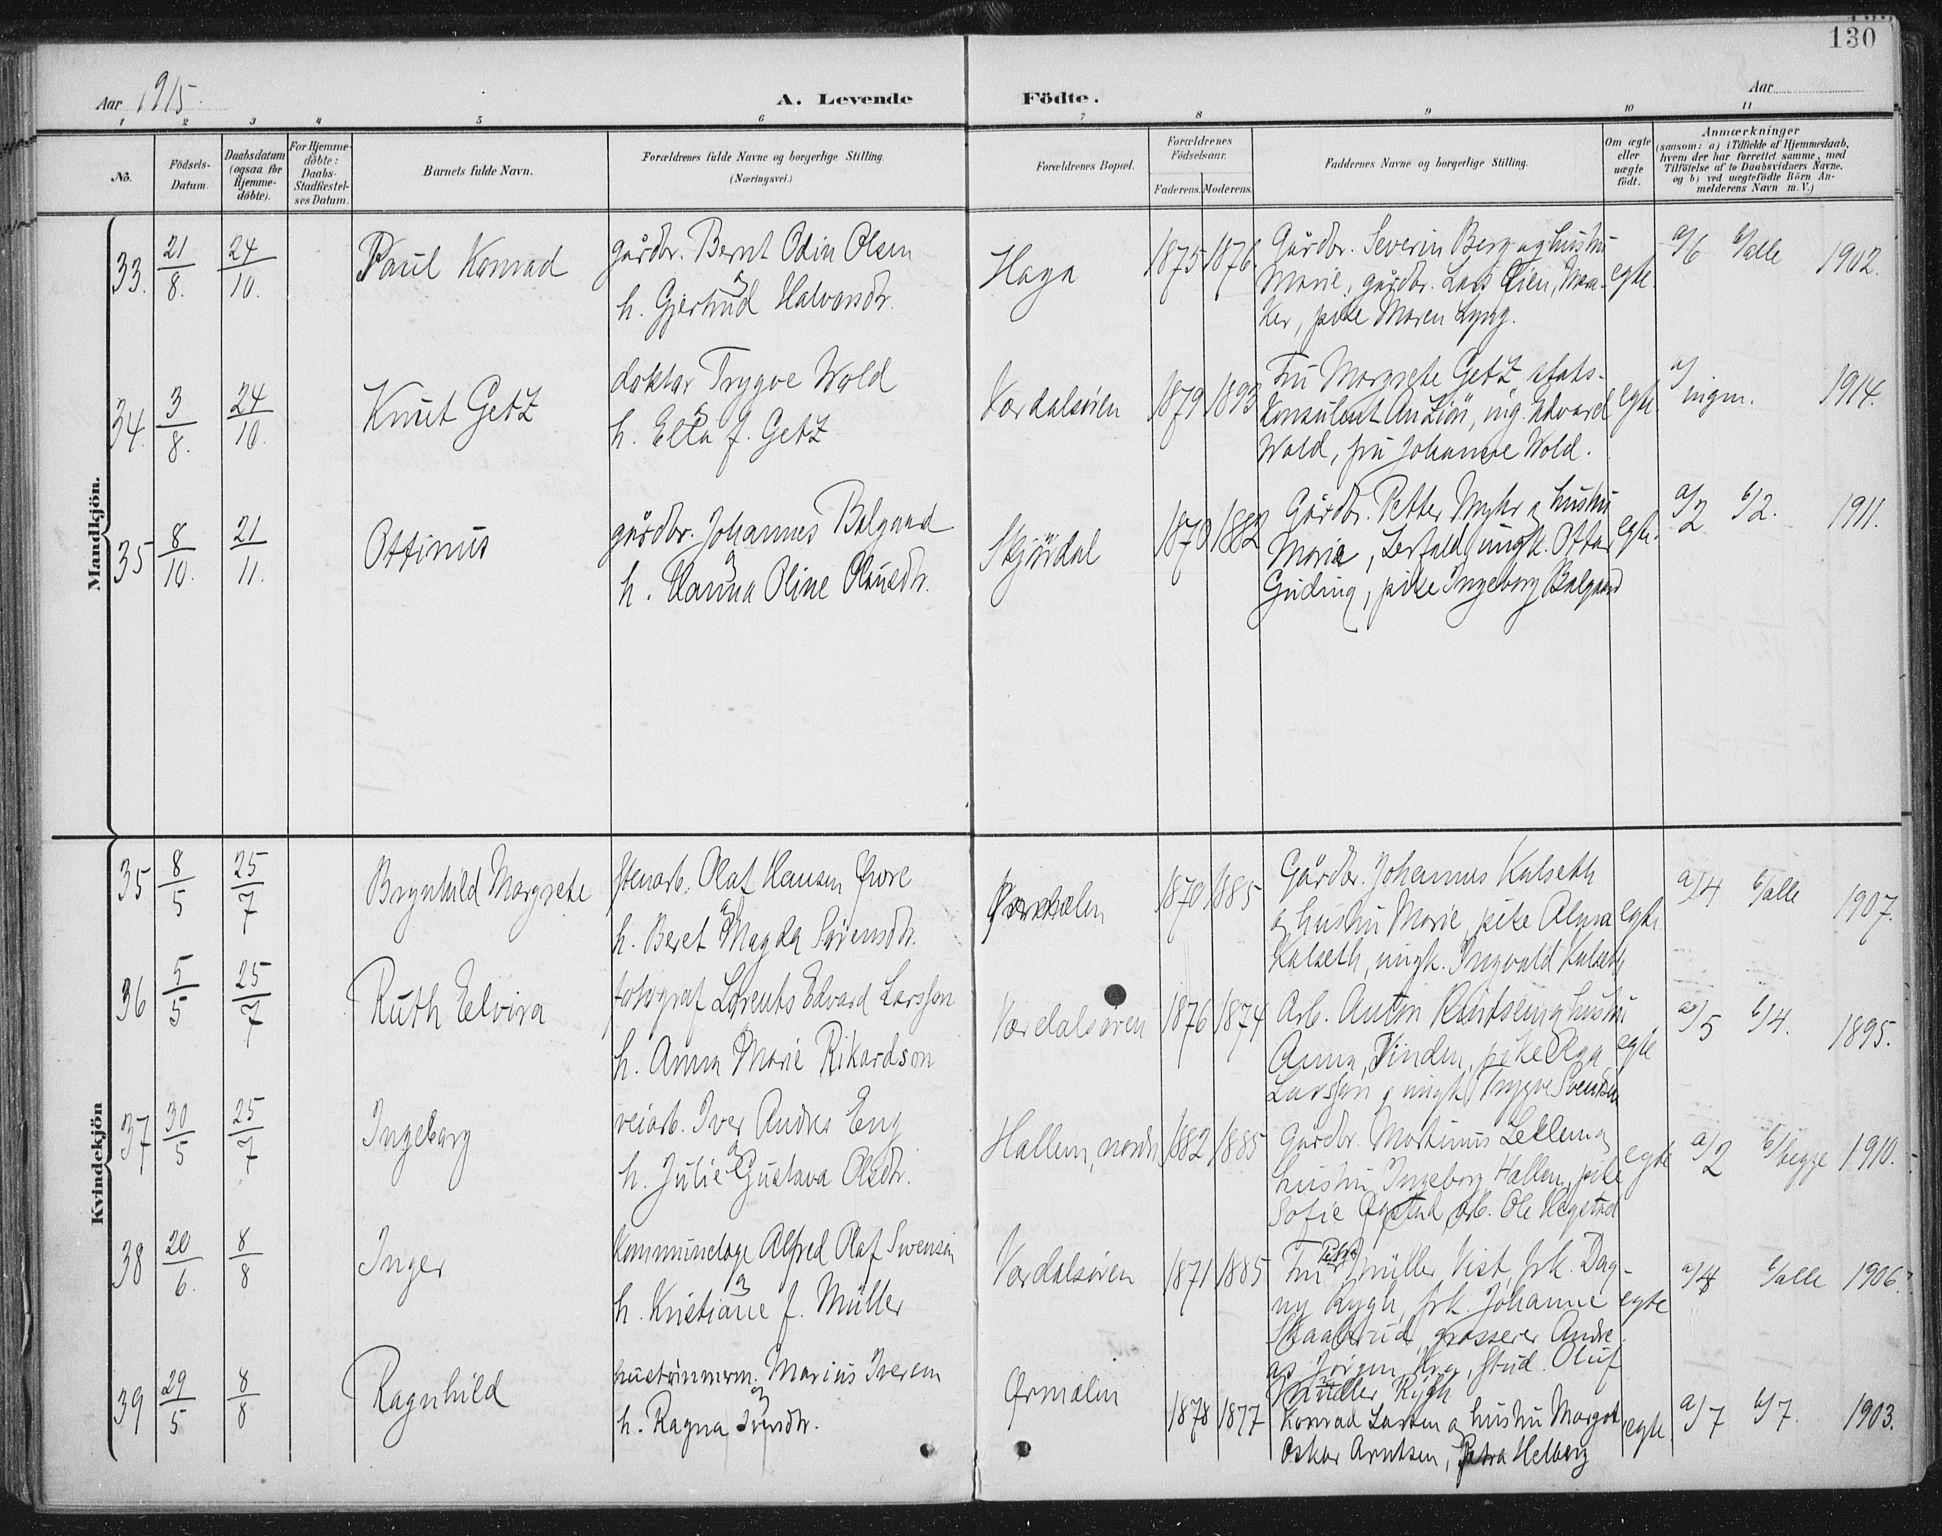 130
Aar 1915.
A. Levende Födte.
Aar
1 2 3 4 5 6 7 8 9 10 11
No.
Födsels-
Datum.
Daabsdatum
(ogsaa for
Hjemme-
döbte).
For Hjemme-
döbte:
Daabs-
Stadfæstel-
ses Datum.
Barnets fulde Navn.
Forældrenes fulde Navne og borgerlige Stilling.
(Næringsvei.)
Forældrenes Bopæl.
Forældrenes
Födselsaar.
Faderens. Moderens.
Faddernes Navne og borgerlige Stilling.
Om ægte
eller
uægte
födt.
Anmærkninger
(saasom: a) i Tilfælde af Hjemmedaab,
hvem der har forrettet samme, med
Tilföielse af to Daabsvidners Navne,
og b) ved uægtefödte Börn An-
melderens Navn m. V.)
Mandkjön.
33. 21/8. 24/10. Paul Konrad
gårdbr. Bernt Odin Olsen
h. Gjertrud Halvorsdtr.
Haga 1875 1876.
Gårdbr. Severin Berg og hustru
Marie, gårdbr. Lars Lien,
ker, pike Maren Lyng.
egte. a/6 b/alle 1902.
34. 3/8. 24/10. Knut Getz
doktor Trygve Wold
h. Ella f. Getz
Værdalsøren 1879 1893
Fru Margrete Getz, stats-
konsulent ing. Edvard
Wold, fru Johanne Wold.
egte. a/ingen. 1914.
35 8/10. 21/11. Ottinus
gårdbr. Johannes Balgaard
h. Hanna Oline Olausdtr.
Skjørdal 1870 1882
Gårdbr. Petter Myhr og hustru
Marie, Lerfald, ungk. Ottar
Guding, pike Ingeborg Balgaard
egte. a/2 b/2. 1911.
Kvindekjön
35 8/5 25/7 Brynhild Margrete
stenarb. Olaf Hansen
h. Beret Magda Sørensdtr.
Ørmelen 1870 1885
Gårdbr. Johannes Kalseth
og hustru Marie, pike Alma
Kalseth, ungk. Ingvald Kalseth
egte a/4 b/alle 1907.
36 5/5 25/7 Ruth Elvira
fotograf Lorents Edvard Larsson
h. Anna Marie Rikardson
Værdalsøren 1876 1874
Arb. Anton Knutsen og hustru
Anna, Tinden, pike Aga
Larsson, ungk. Trygve Svendsen
egte a/5 b/4. 1895.
37 30/5 25/7 Ingeborg
veiarb. Iver Andres Eng
h. Julie Gustava Olsdtr.
Hallem, nordr. 1882 1885
Gårdbr. Martinus Leklem og
hustru Ingeborg Hallem, pike
Sofie Øgstad, arb. Ole Hegstad
egte a/2 b/begge 1910.
38 20/6. 8/8 Inger
kommunelæge Alfred Olaf Svensen
h. Kristiane f. Müller
Værdalsøren 1871 1885
Fru Petra Müller, Vist, frk. Dag-
ny Rygh, frk. Johanne
Skaabrud, grosserer Andre-
as Jørgen Kra, stud. Oluf
Müller Rygh
egte a/4 b/alle 1906.
39 29/5 8/8 Ragnhild
hustømmerm. Marius Iversen
h. Ragna Iversdtr.
Ørmelen 1878 1877
Konrad Larsen og hustru Margot
Oskar Arntsen, Petra Helberg
egte a/7 b/7. 1903.